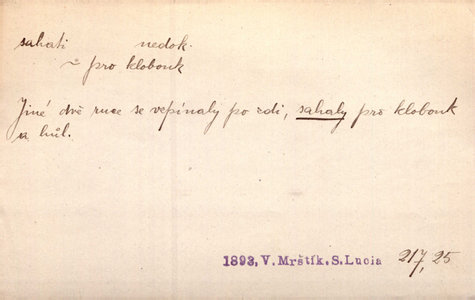 sahati nedok.
~ pro klobouk
Jiné dvě ruce se vepínaly po zdi, sahaly pro klobouk
a hůl.
1893, V. Mrštík. S. Lucia 217, 25